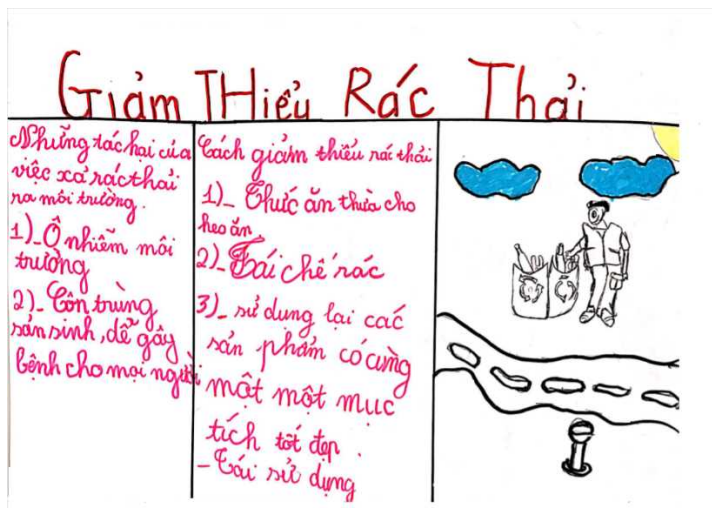 Giảm THiểu Rác Thải
Những tác hại của
việc xả rác thải
ra môi trường.
1)_Ô nhiễm môi
trường
2)_Côn trùng
sản sinh, dễ gây
bệnh cho mọi người
Cách giảm thiểu rác thải
1)_ Thức ăn thừa cho
heo ăn.
2)_Tái chế rác
3)_ sử dụng lại các
sản phẩm có cùng
một một mục
tích tốt đẹp.
-Tái sử dụng